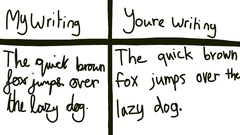 My Writing
Youre writing
The quick brown
fox jumps over
the lazy dog.
The quick brown
fox jumps over the
lazy dog.